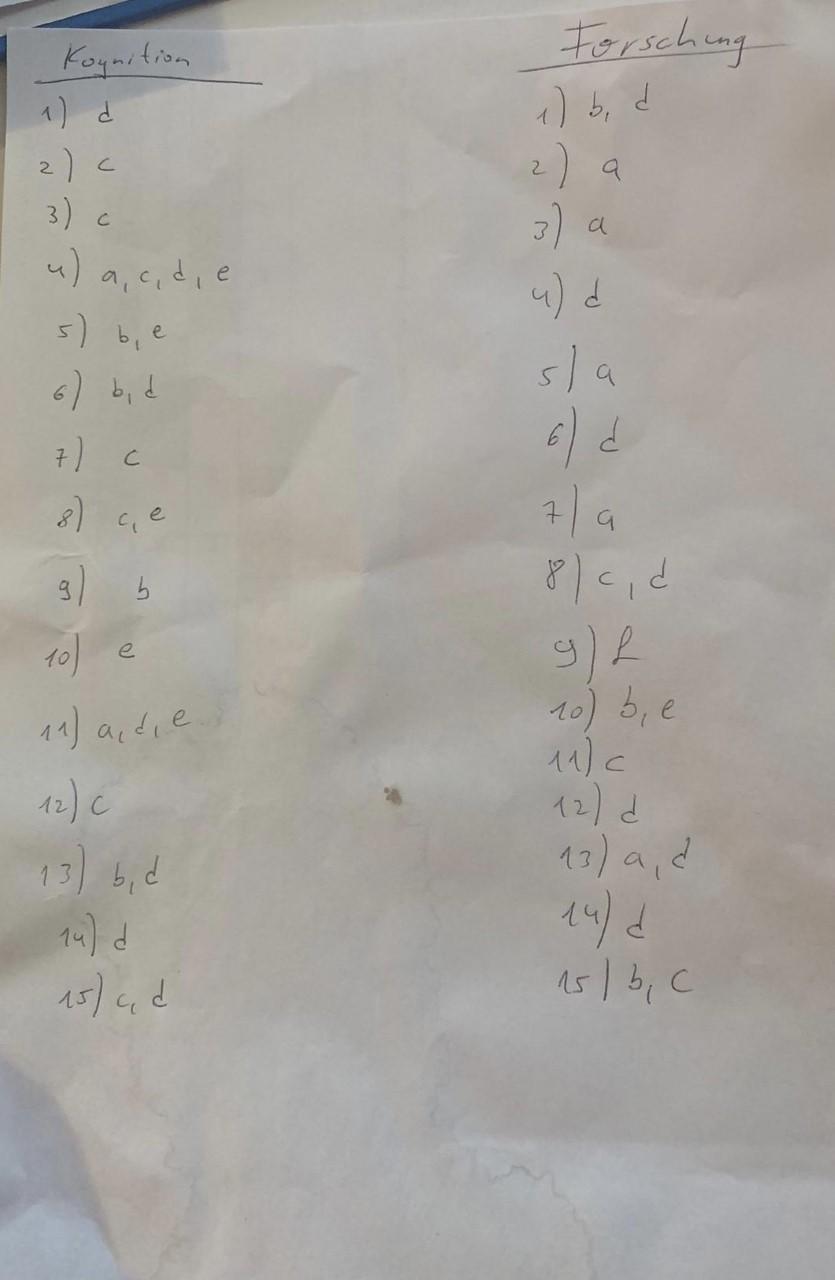 Kognition
1) d
2) c
3) c
4) a, c, d, e
5) b, e
6) b, d
7) c
8) c, e
9) b
10) e
11) a, d, e
12) c
13) b, d
14) d
15) c, d
Forschung
1) b, d
2) a
3) a
4) d
5) a
6) d
7) a
8) c, d
9)
10) b, e
11) c
12) d
13) a, d
14) d
15) b, c